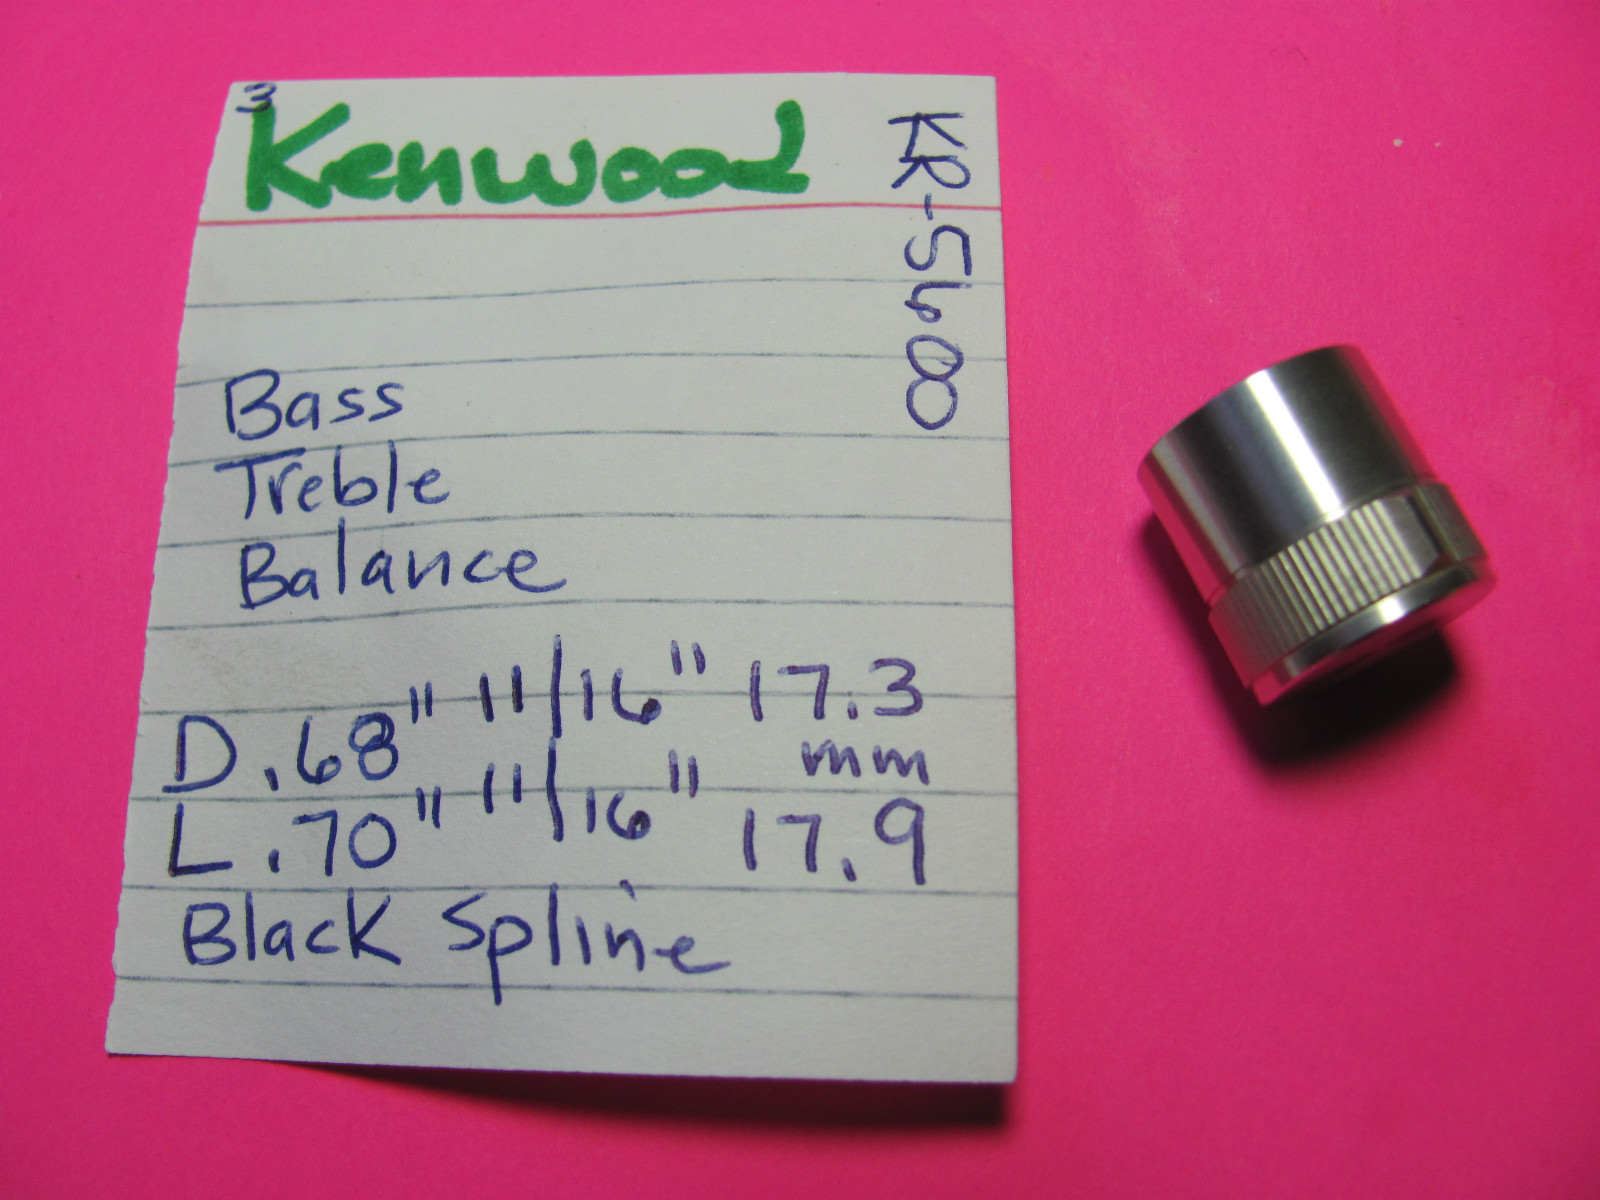 3
Kenwood
KR-5600
Bass
Treble
Balance
D .68" 11/16" 17.3
mm
L .70" 11/16" 17.9
Black Spline